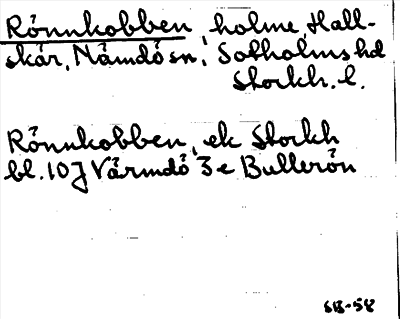 Rönnkobben, holme, Hall-
skär, Nämdö sn, Sotholms hd
Stockh. l.
Rönnkobben, ek Stockh
bl. 10J Värmdö 3e Bullerön
SB-58